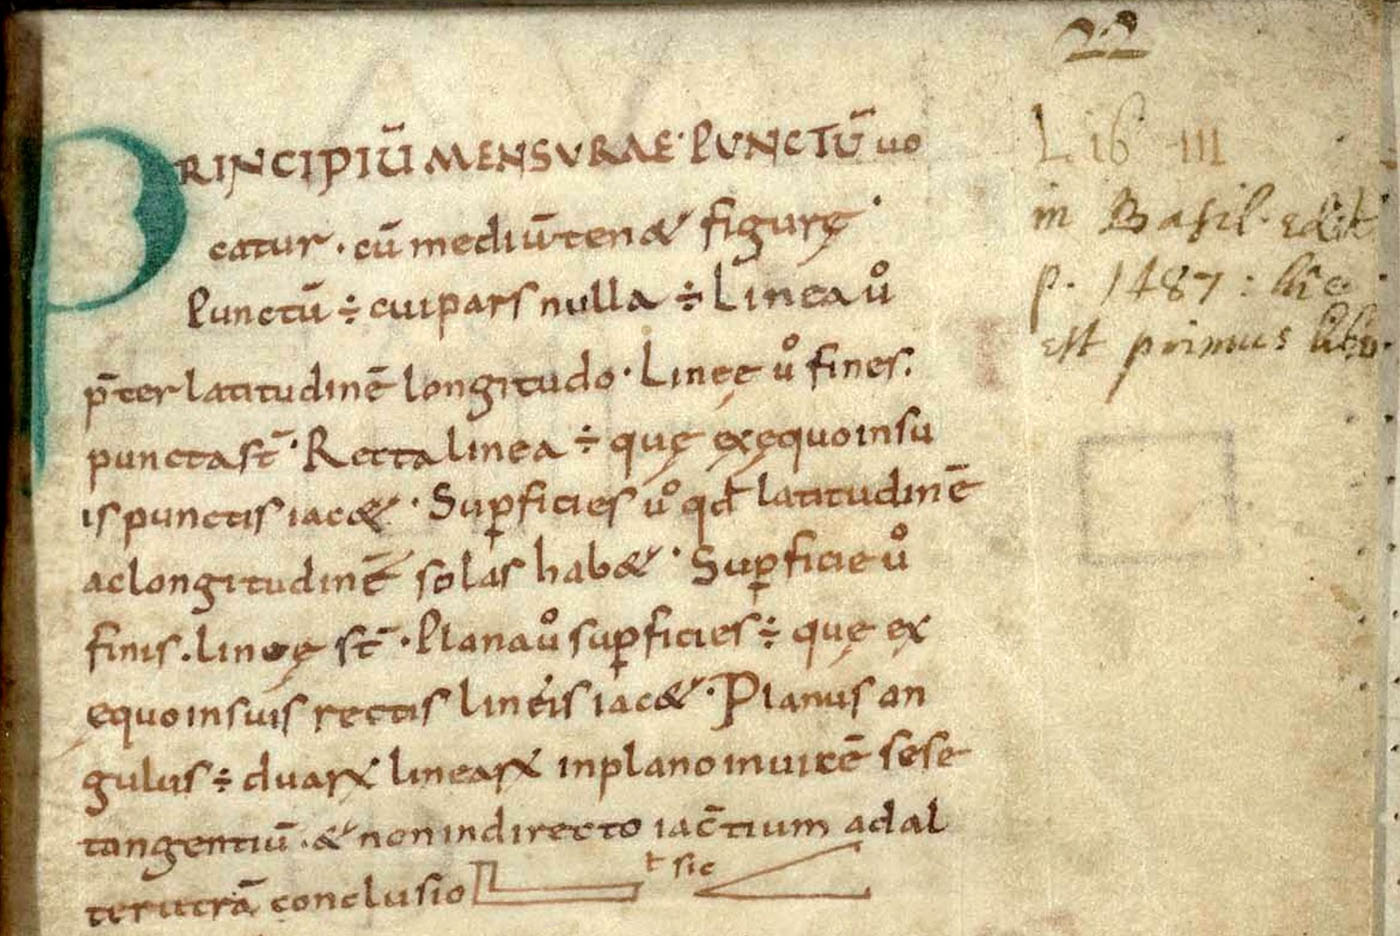 22
PRINCIPIŪ MENSVRAE· PUNCTŪ uo
catur · cū mediū ten& figurę·
Punctū ÷ cui pars nulla ÷ Linea uͦ
p̄ter latitudinē longitudo · Linęę uͦ fines.
puncta st̄ · Recta linea ÷ quę exęquo insu
is punctis iac& · Sup̱ficies uͦ qđ latitudinē
ac longitudinē solas hab& · Sup̱ficie uͦ
finis . lineę st̄ · Plana uͦ sup̱ficies ÷ quę ex
equo insuis rectis lineis iac& · Planus an
gulus ÷ duaꝝ lineaꝝ inplano inuicē sese
tangentiū · & non indirecto iac̄tium ad al
terutrā conclusio ł sic
Lib III
in Basil. edit
p. 1487 : hic
est primus